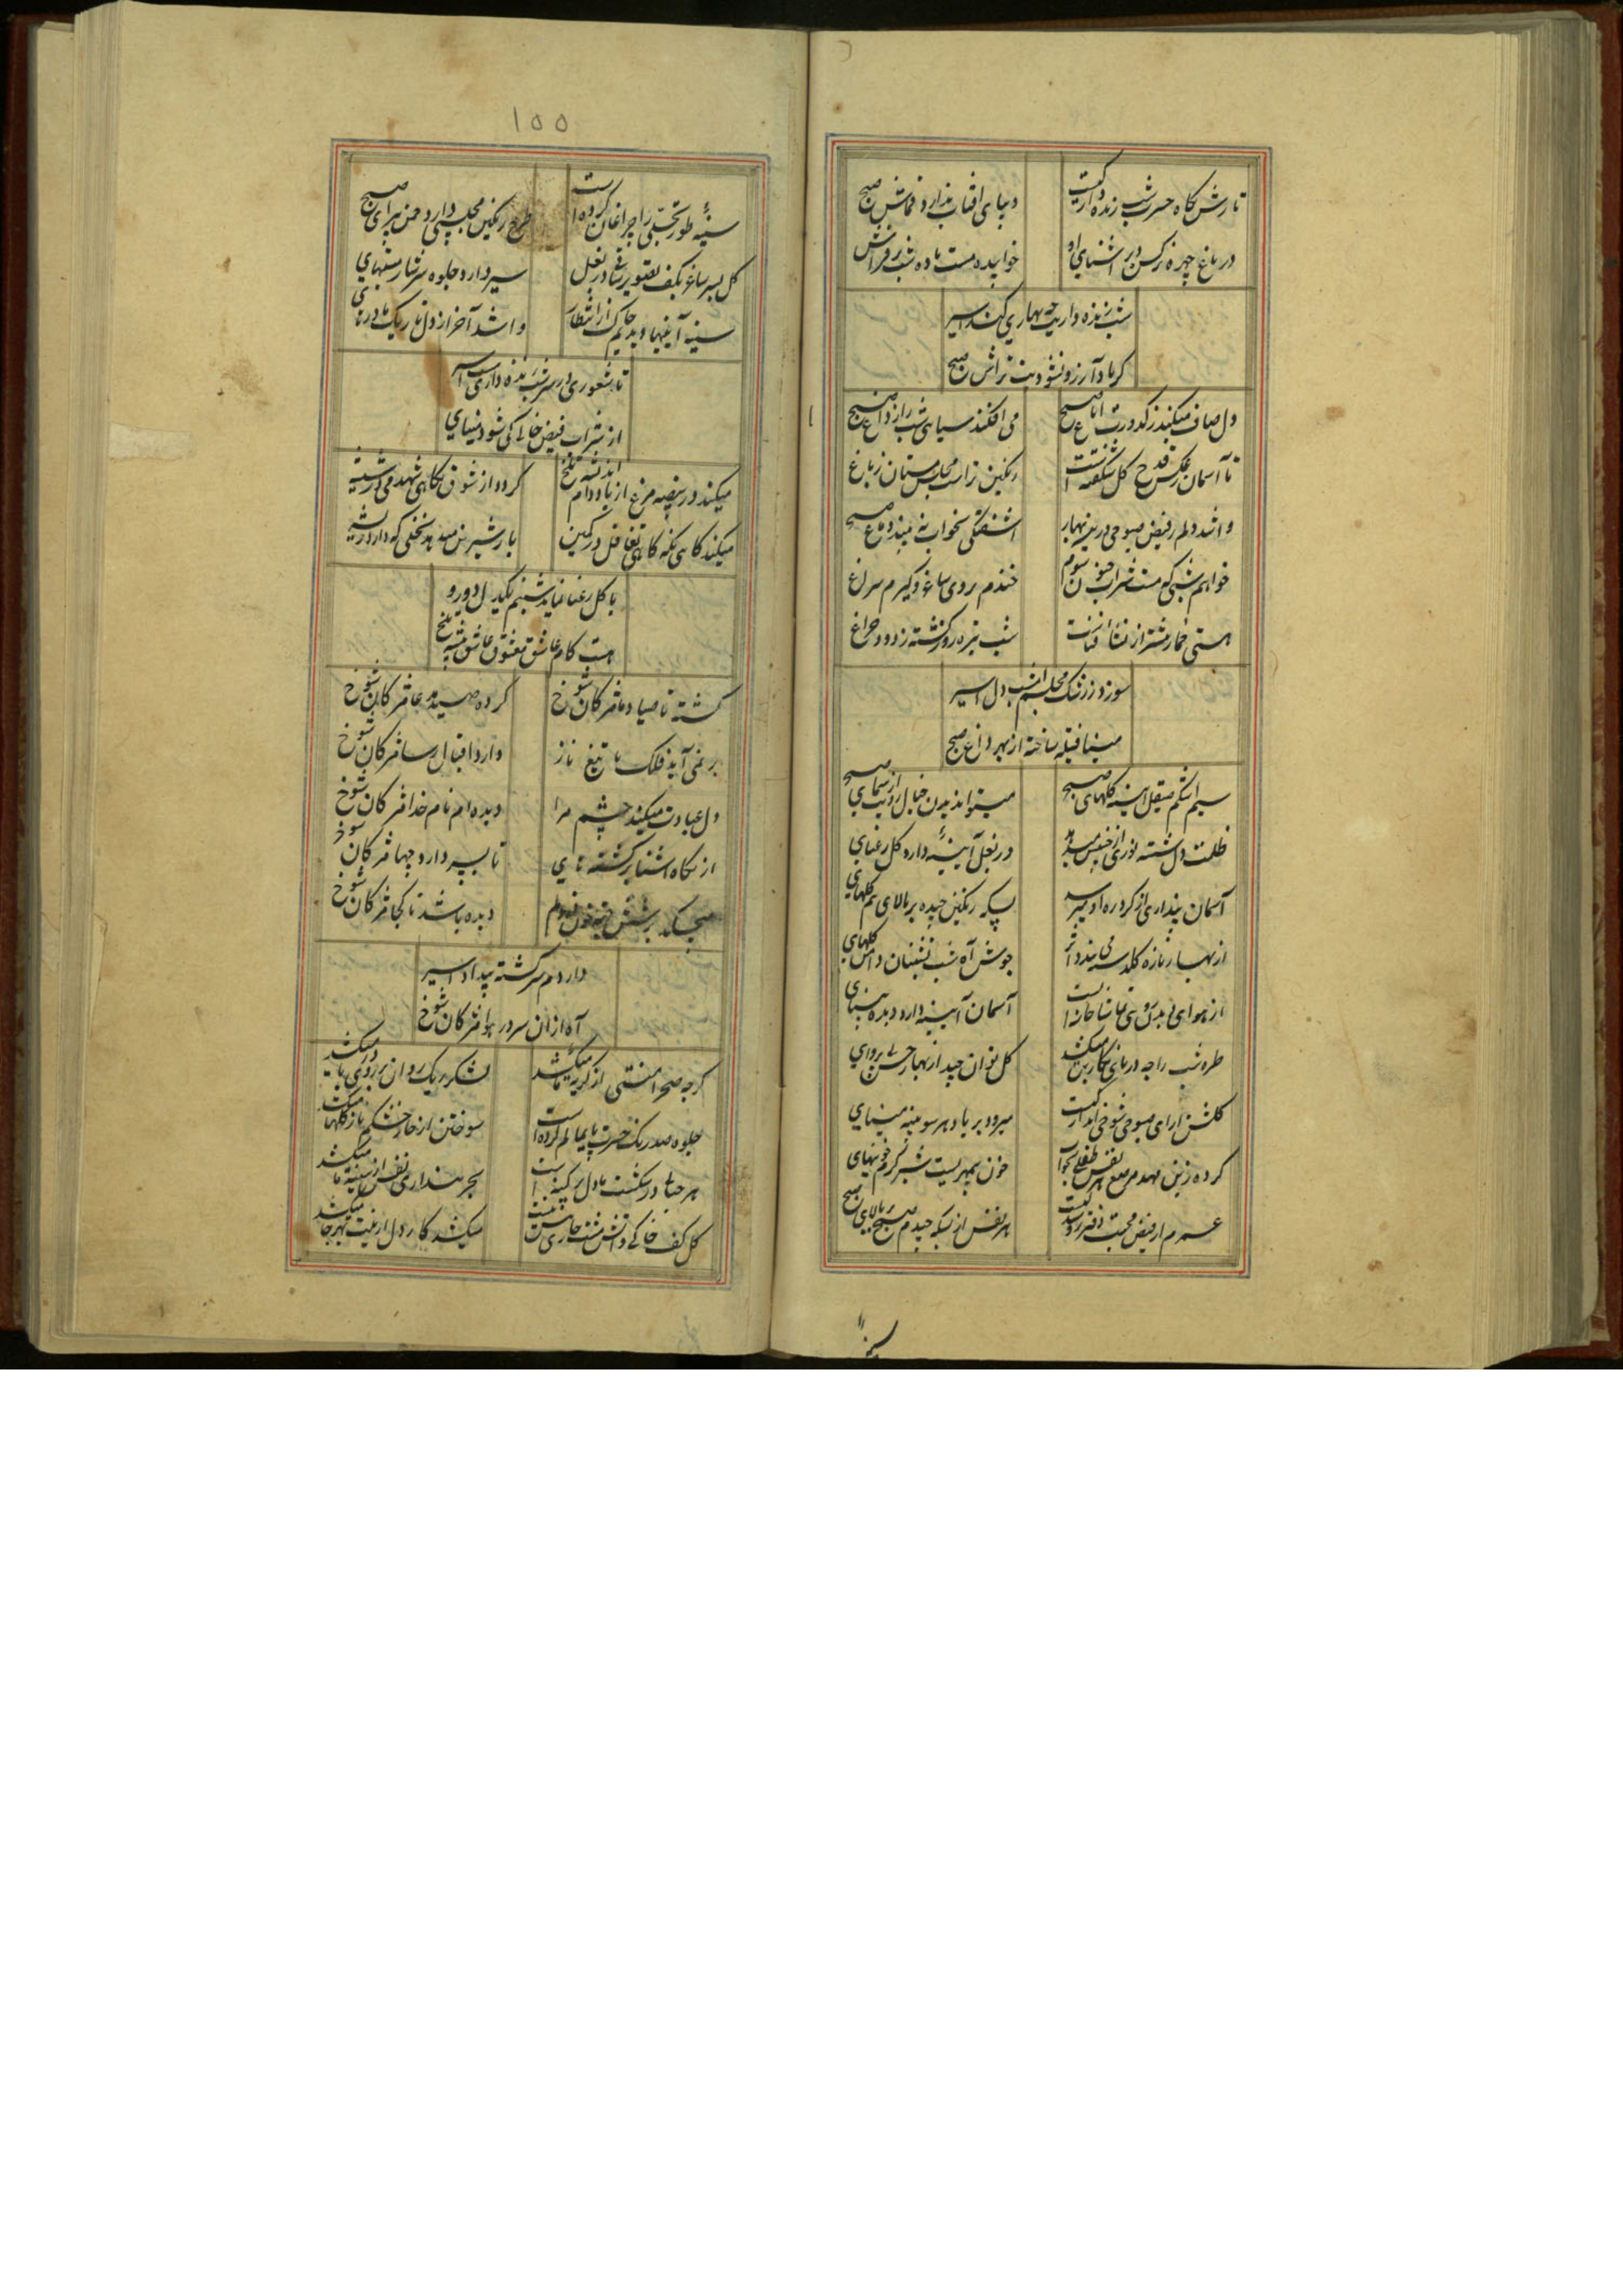 تارش نگاه حسرت شب زنده دار کیست
دیبای آفتاب ندارد قماش صبح
در باغ چهره نرکس دیر آشنای او
خوابیده مست باده شب در فراش
شب زنده داریت چه بهاری کند اسیر
کر باد آرزو نشود بت تراش صبح
دل صاف میکند ز کدورت ایاغ صبح
می افکند سیاهی شب را ز داغ صبح
تا آسمان ز عکس قدح گل شکفته است
رنگین تر است مجلس مستان ز باغ
وا شد دلم ز فیض صبوحی درین بهار
آشفتگی بخواب نه بیند دماغ صبح
خواهم شبی که مست شراب جنون شوم
خندم بروی ساغر و گیرم سراغ
هستی خمار مشتر از نشأ فناست
شب تیره رو گذشته ز دود چراغ
سوزد ز رشک مجلسم امشب دل اسیر
مینا فتیله ساخته از بهر داغ صبح
سیم اشکم صیقل آیینه گلهای صبح
میتواند دیدن خیال رویت از سیمای صبح
ظلمت دل شسته نوری از جبینش میدمد
در بغل آیینهٔ دارد گل رعنای
آسمان پنداری از گرد ره او میرسد
بسکه رنگین چیده بر بالای هم گلهای
از بهار تازه گلدسته‌ئی بندد اثر
جوش آه شب نشینان دامن گلهای
آسمان آیینه دارد دیده بینای
طره شب را چه در پای نگارین میکشد
گل توان چید از بهار حسن بی پروای
گلشن آرای صبوحی شوخی انداز کیست
میرود بر باد هر سو پنبه مینای
کرده زین مهد مرصع هر نفس طفلی بخواب
خون بیمهریست شیر گرم خونیهای
عمرم از فیض محبت دفتر رو دست کیست
هر نفس از بسکه چیدم صبح بر بالای صبح
۱۵۵
سینهٔ طور تجلی را چراغان کرده است
طرح رنگین مجلسی دارد چمن پیرای صبح
گل بسر ساغر بکف تصویر ساقی در بغل
سیر دارد جلوه سرشار مستیهای
سینه آیینها دیدیم چاک از انتظار
وا شد آخر از دل تاریک ما درهای
تا شعوری در سر شب زنده داری اسیر
از شراب فیض خالی کی شود مینای
میکند در بیضه مرغ از یاد دام اندیشه تلخ
گردد از شوق نگاهی شهد می در شیشه
میکند گاهی نگه گاهی تغافل در کمین
بار شیرین میدهد نخلی که دارد ریشه
با گل رعنا نماید شبنم یکدل دو رو
هست کام عاشق معشوق عاشق پیشه تلخ
گشته تا صیاد ما مژگان شوخ
کرده صید مدعا مژگان شوخ
بر نمی آید فلک با تیغ ناز
دارد اقبال رسا مژگان شوخ
دل عبادت میکند چشم مرا
دیده ام نام خدا مژگان شوخ
از نگاه آشنا برگشته نای
تا بسر دارد چها مژگان شوخ
میچکد برشش خون دلم
دیده باشد تا کجا مژگان شوخ
دارد دم سرگشته بیداد اسیر
آه از ان سر در هوا مژگان شوخ
گرچه صحرا منتی از گریهٔ ما میکشد
لشکر ریک روان بر روی دریا میکشد
جلوه صد رنگ حسرت پایمالم کرده است
سوختن از خار خشکم ناز گلها میکشد
هر حبابی در شکست ما دل پر کینه است
بحر پنداری نفس از سینه ما میکشد
گل کف خاکی و آتش مشت خاری بیش نیست
میکشد کار دل از نیت بهر جا میکشد
سینهٔ